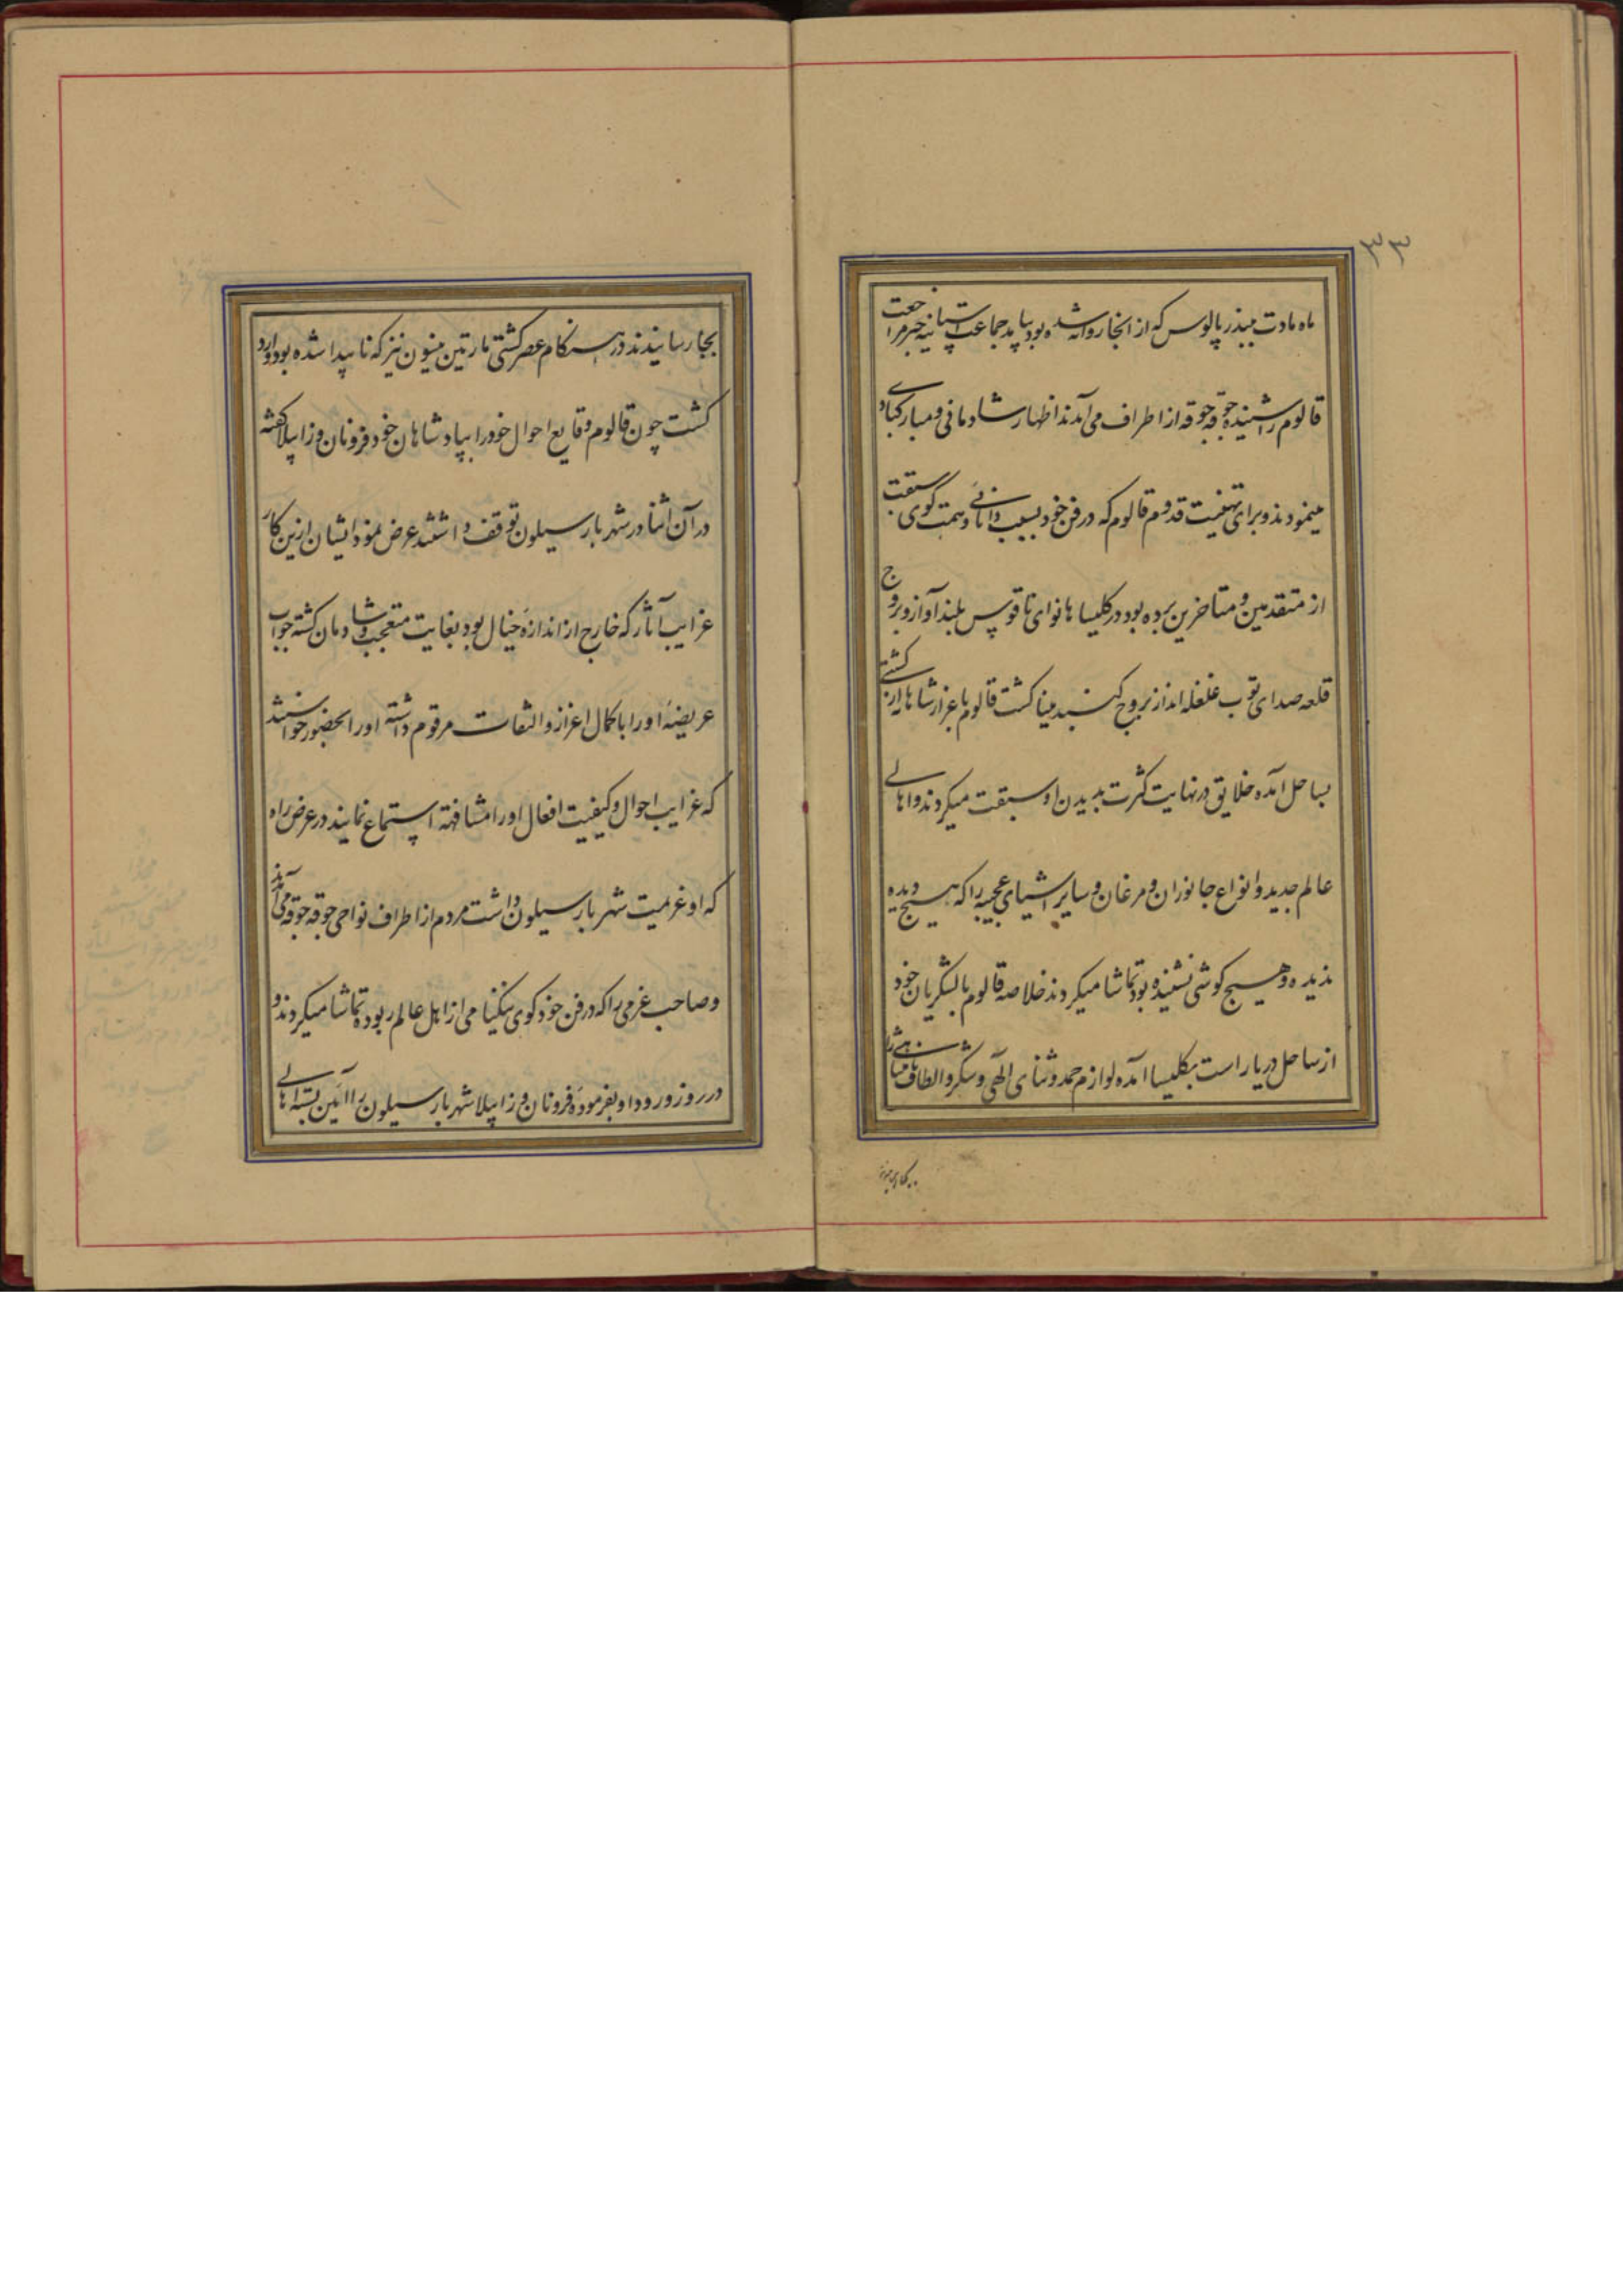 ۳۳
ماه مادت ببندر پالوس که از انجا روانه شده بود بیاید جماعت اسپانیه خبر مراجعت
قالوم را شنیده جوقه جوقه از اطراف می‌آمدند اظهار شادمانی و مبارکبادی
مینمودند و برای تهنیت قدوم قالوم که در فن خود بسبب دانائی و همت گوی سبقت
از متقدمین و متاخرین برده بود در کلیساها نوای ناقوس بلند آواز و بروج
قلعه صدای توپ غلغله انداز بروج گنبد مینا گشت قالوم باعزاز شاهانه از کشتی
بساحل آمده خلایق در نهایت کثرت بدیدن او سبقت میکردند و اهالی
عالم جدید و انواع جانوران و مرغان و سایر اشیای عجیبه را که هیچ دیده
ندیده و هیچ گوشی نشنیده بود تماشا میکردند خلاصه قالوم با لشکریان خود
از ساحل دریا راست بکلیسا آمده لوازم حمد و ثنای الهی و شکر و الطاف نامتناهی را
بجا رسانیدند
بجا رسانیدند در هنگام عصر کشتی مارتین مینون نیز که ناپیدا شده بود وارد
گشت چون قالوم وقایع احوال خود را بپادشاهان خود فرونان و زاپیلا که
در آن اثنا در شهر بارسیلون توقف داشتند عرض نمود ایشان ازین کار
غرایب آثار که خارج از اندازه خیال بود بغایت متعجب و شادمان گشته جواب
عریضه او را با کمال اعزاز و التفات مرقوم داشته او را بحضور خواستند
که غرایب احوال و کیفیت افعال او را مشافهة استماع نمایند در عرض راه
که او عزیمت شهر بارسیلون داشت مردم از اطراف نواحی جوقه جوقه می‌آمدند
و صاحب عزمی را که در فن خود گوی نیکنامی از اهل عالم ربوده تماشا میکردند و
در روز ورود او بفرموده فرونان و زاپیلا شهر بارسیلون را آئین بسته اهالی